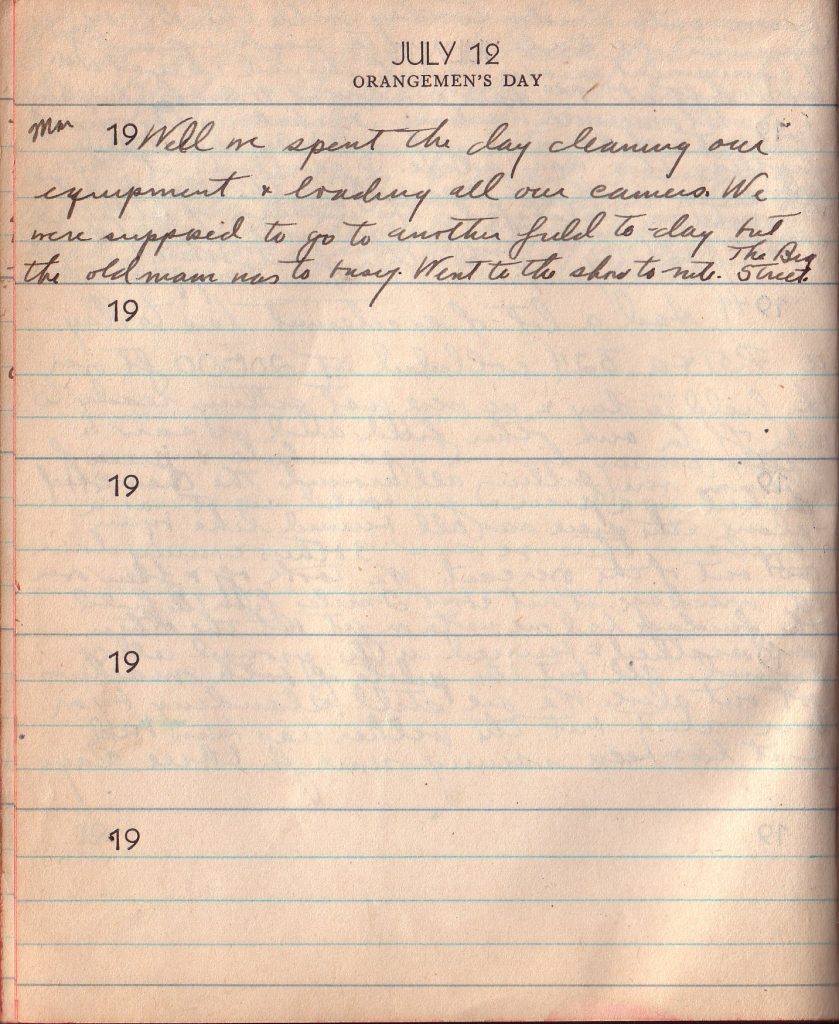 JULY 12
ORANGEMEN'S DAY
Mon 19 Well we spent the day cleaning our
equipment & loading all our cameras. We
were supposed to go to another field to-day but
the old man was to busy. Went to the show to-nite. The Big Street.
19
19
19
19